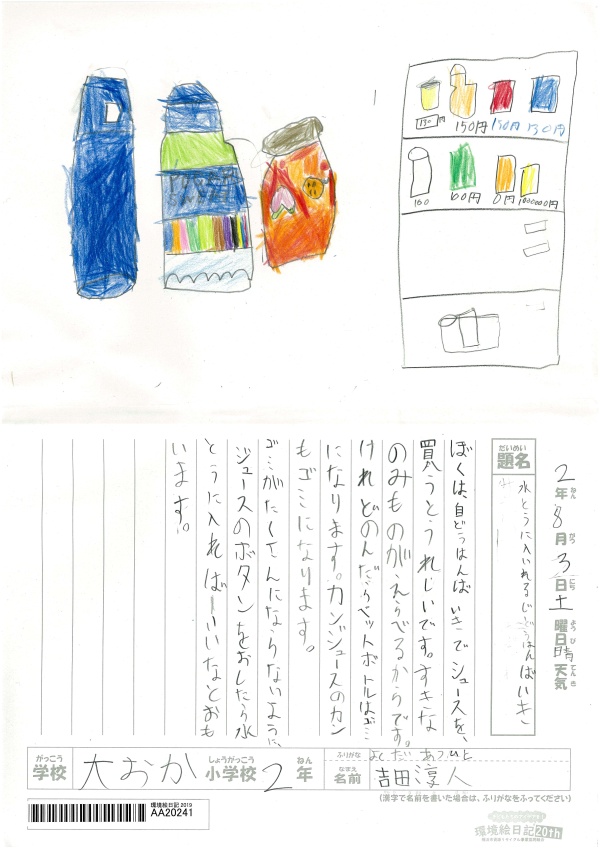 130円
150円
150円
130円
100
100円
0円
100000円
2年8月3日土曜日晴天気
ねん がつ にち よう び てん き
だいめい
題名
水とうに入いれるじどうはんばいき
ぼくは、自どうはんばいきでジュースを、
買うとうれしいです。すきな
のみものがえらべるからです。
けれどのんだらペットボトルはゴミ
になります。カンジュースのカン
もゴミになります。
ゴミがたくさんにならないように、
ジュースのボタンをおしたら水
とうに入ればーいいなとおも
います。
がっこう
学校
大おか
しょうがっこう
小学校
2
ねん
年
ふりがな
よしだ あつひと
なまえ
名前
吉田淳人
(漢字で名前を書いた場合は、ふりがなをふってください)
環境絵日記2019
AA20241
環境絵日記20th